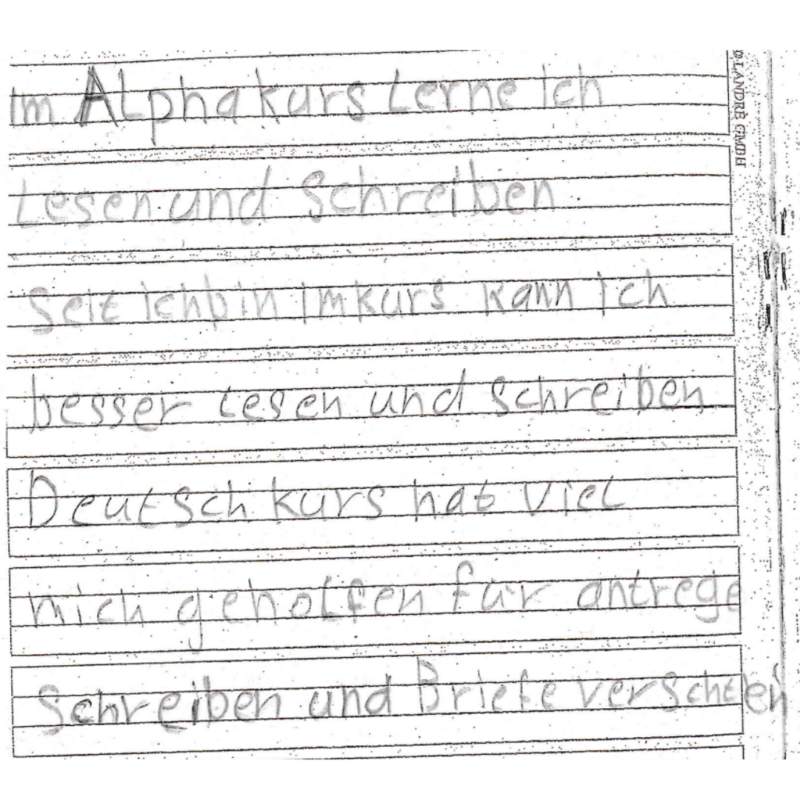 Im Alphakurs Lerne ich
Lesen und Schreiben
Seit ichbin imkurs kann ich
besser lesen und schreiben
Deutsch kurs hat viel
mich geholfen für antrege
Schreiben und Briefe
LANDRÉ GMBH